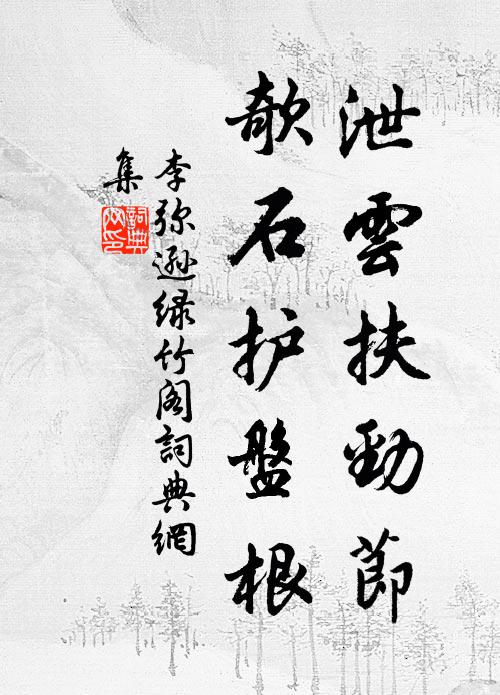 泄雲扶勁節
欹石护盤根
李弥遜绿竹阁詞典網
集
詞典網印